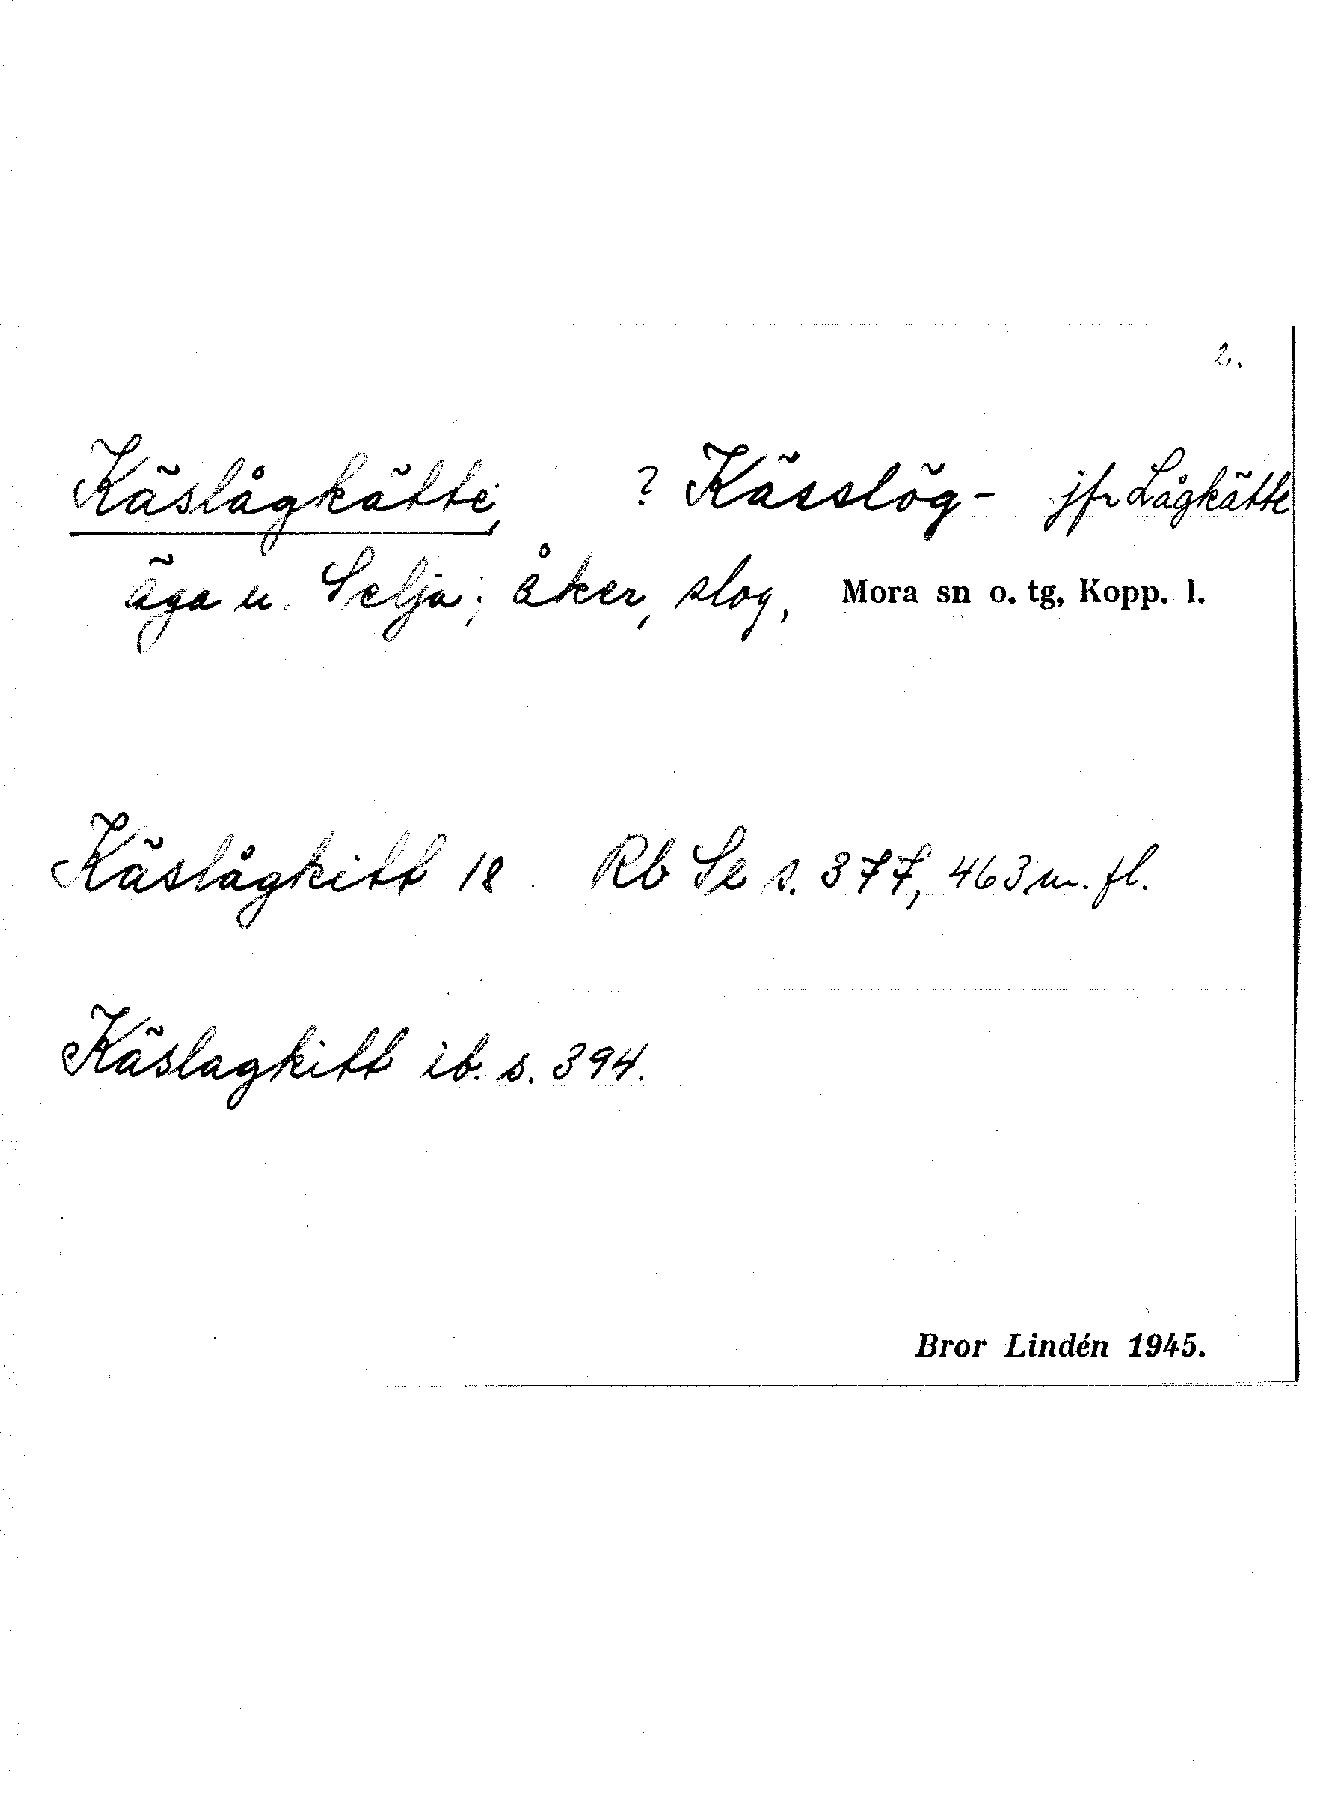 2.
Käslågkätte, ? Kässlög- jfr Lågkätte
äga u. Selja; åker, slog, Mora sn o. tg, Kopp. l.
Käslågkitt 18 Rb Se s. 377, 463 m. fl.
Käslagkitt ib. s. 394.
Bror Lindén 1945.